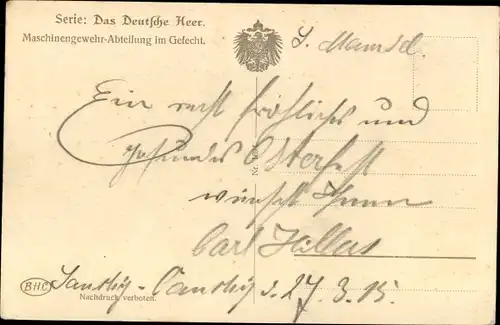 Serie: Das Deutsche Heer.
Maschinengewehr-Abteilung im Gefecht.
Ein recht fröhliches und
gesundes Osterfest
wünscht Ihnen
Carl
27.3.15.
BHC
Nachdruck verboten.
Nr.